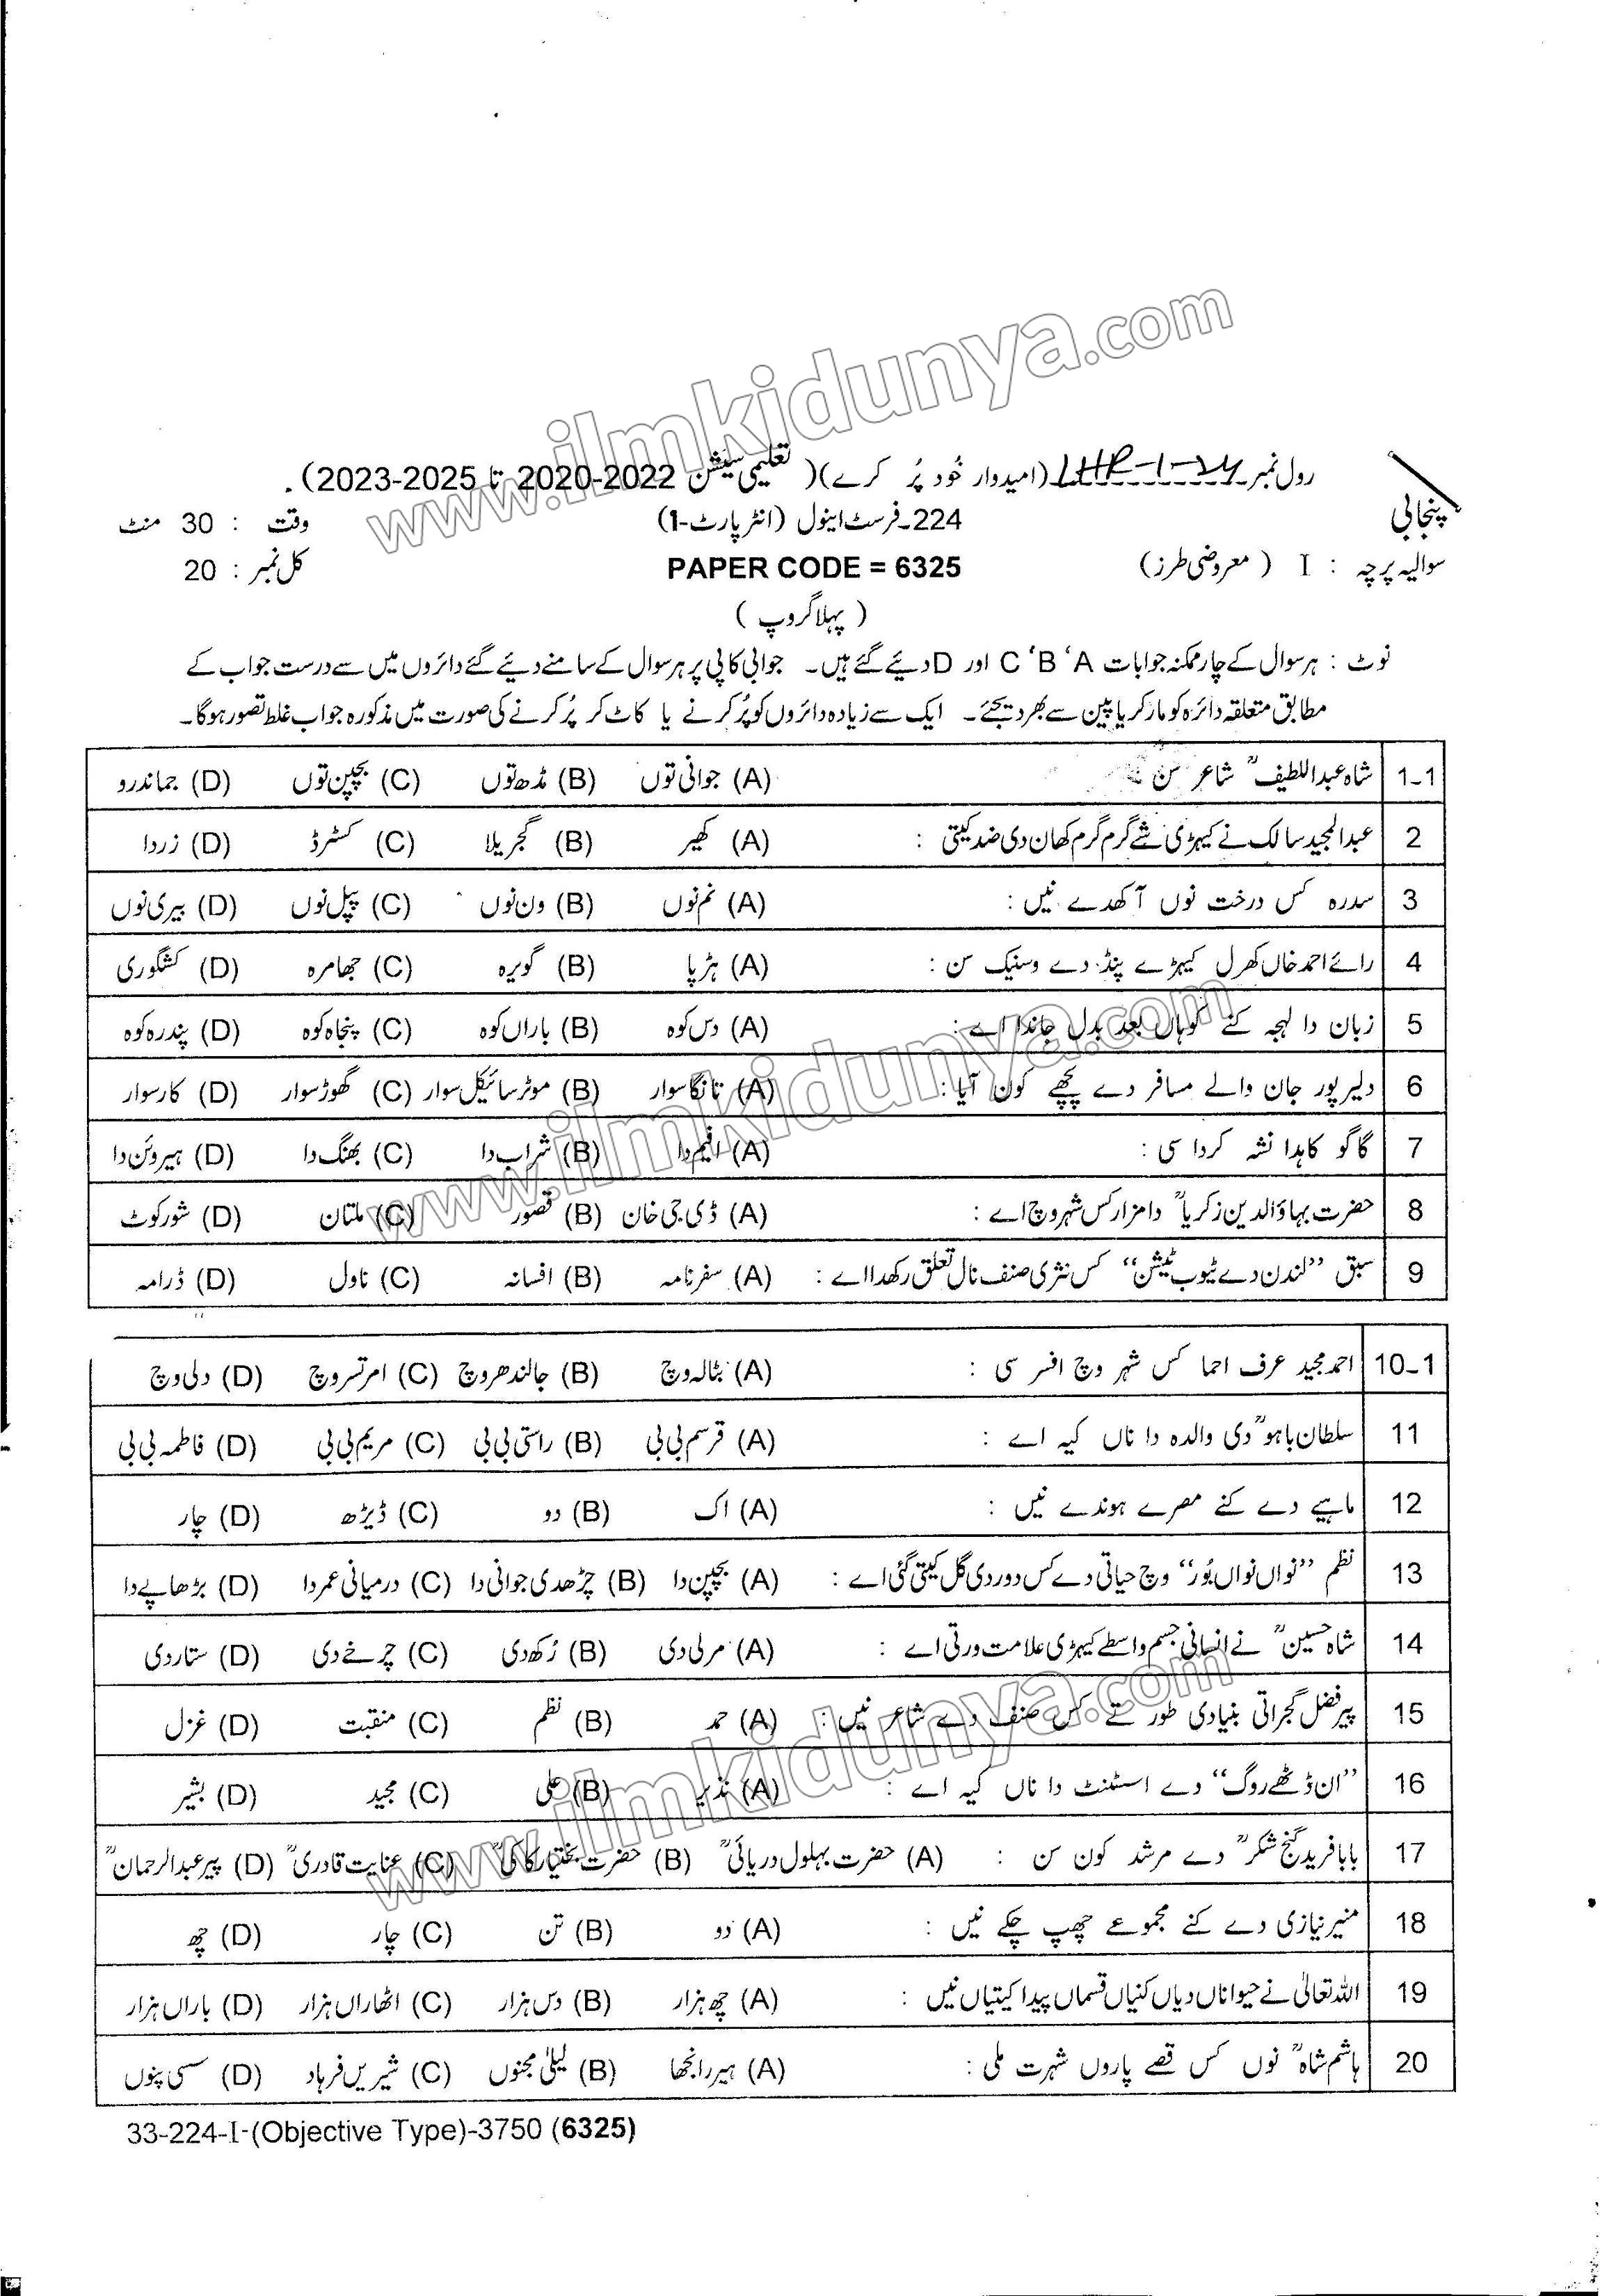 www.ilmkidunya.com
رول نمبر LHR-1-24 (امیدوار خُود پُر کرے) (تعلیمی سیشن 2022-2020 تا 2025-2023).
پنجابی
224۔فرسٹ اینول (انٹر پارٹ-1)
وقت : 30 منٹ
سوالیہ پرچہ : I (معروضی طرز)
PAPER CODE = 6325
کل نمبر : 20
(پہلا گروپ)
نوٹ : ہر سوال کے چار ممکنہ جوابات A‘B‘C اور D دیئے گئے ہیں۔ جوابی کاپی پر ہر سوال کے سامنے دیئے گئے دائروں میں سے درست جواب کے
مطابق متعلقہ دائرہ کو مارکر یا پین سے بھر دیجئے۔ ایک سے زیادہ دائروں کو پُر کرنے یا کاٹ کر پُر کرنے کی صورت میں مذکورہ جواب غلط تصور ہوگا۔
1-1 شاہ عبداللطیفؒ شاعر سن (A) جوانی توں (B) مڈھ توں (C) بچپن توں (D) جماندرو
2 عبدالمجید سالک نے کیہڑی شے گرم گرم کھان دی ضد کیتی : (A) کھیر (B) گجریلا (C) کسٹرڈ (D) زردا
3 سدرہ کس درخت نوں آکھدے نیں : (A) نم نوں (B) ون نوں (C) پپل نوں (D) بیری نوں
4 رائے احمد خاں کھرل کیہڑے پنڈ دے وسنیک سن : (A) ہڑپا (B) گویرہ (C) جھامرہ (D) کشکوری
5 زبان دا لہجہ کنے کوہاں بعد بدل جاندا اے : (A) دس کوہ (B) باراں کوہ (C) پنجاہ کوہ (D) پندرہ کوہ
6 دلیر پور جان والے مسافر دے پچھے کون آیا : (A) تانگا سوار (B) موٹر سائیکل سوار (C) گھوڑ سوار (D) کار سوار
7 گاگو کاہدا نشہ کردا سی : (A) افیم دا (B) شراب دا (C) بھنگ دا (D) ہیروئن دا
8 حضرت بہاؤالدین زکریاؒ دا مزار کس شہر وچ اے : (A) ڈی جی خان (B) قصور (C) ملتان (D) شورکوٹ
9 سبق ”لندن دے ٹیوب ٹیشن“ کس نثری صنف نال تعلق رکھدا اے : (A) سفرنامہ (B) افسانہ (C) ناول (D) ڈرامہ
10-1 احمد مجید عرف احما کس شہر وچ افسر سی : (A) بٹالہ وچ (B) جالندھر وچ (C) امرتسر وچ (D) دلی وچ
11 سلطان باہوؒ دی والدہ دا ناں کیہ اے : (A) قرسم بی بی (B) راستی بی بی (C) مریم بی بی (D) فاطمہ بی بی
12 ماہیے دے کنے مصرے ہوندے نیں : (A) اک (B) دو (C) ڈیڑھ (D) چار
13 نظم ”نواں نواں بُور“ وچ حیاتی دے کس دور دی گل کیتی گئی اے : (A) بچپن دا (B) چڑھدی جوانی دا (C) درمیانی عمر دا (D) بڑھاپے دا
14 شاہ حسینؒ نے انسانی جسم واسطے کیہڑی علامت ورتی اے : (A) مرلی دی (B) رُکھ دی (C) چرخے دی (D) ستار دی
15 پیر فضل گجراتی بنیادی طور تے کس صنف دے شاعر نیں : (A) حمد (B) نظم (C) منقبت (D) غزل
16 ”ان ڈٹھے روگ“ دے اسٹنٹ دا ناں کیہ اے : (A) نذیر (B) علی (C) مجید (D) بشیر
17 بابا فرید گنج شکرؒ دے مرشد کون سن : (A) حضرت بہلول دریائیؒ (B) حضرت بختیار کاکیؒ (C) عنایت قادریؒ (D) پیر عبدالرحمانؒ
18 منیر نیازی دے کنے مجموعے چھپ چکے نیں : (A) دو (B) تن (C) چار (D) چھ
19 اللہ تعالیٰ نے حیواناں دیاں کنیاں قسماں پیدا کیتیاں نیں : (A) چھ ہزار (B) دس ہزار (C) اٹھاراں ہزار (D) باراں ہزار
20 ہاشم شاہؒ نوں کس قصے پاروں شہرت ملی : (A) ہیر رانجھا (B) لیلیٰ مجنوں (C) شیریں فرہاد (D) سسی پنوں
33-224-I-(Objective Type)-3750 (6325)